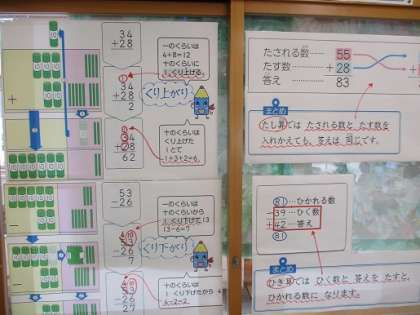 34
+28
一のくらいは
4+8=12
十のくらいに
1くり上げる。
34
+28
2
くり上がり
34
+28
62
十のくらいは
くり上げた
1とで
1+3+2=6
53
-26
一のくらいは
十のくらいから
1くり下げて13
13-6=7
53
-26
7
くり下がり
53
-26
27
十のくらいは
1くり下げたから4
4-2=2
たされる数 …… 55
たす数 …… +28
答え …… 83
まとめ
たし算では たされる数と たす数を
入れかえても、答えは 同じです。
81…ひかれる数
-39…ひく数
+42…答え
81
まとめ
ひき算では ひく数と 答えを たすと、
ひかれる数に なります。